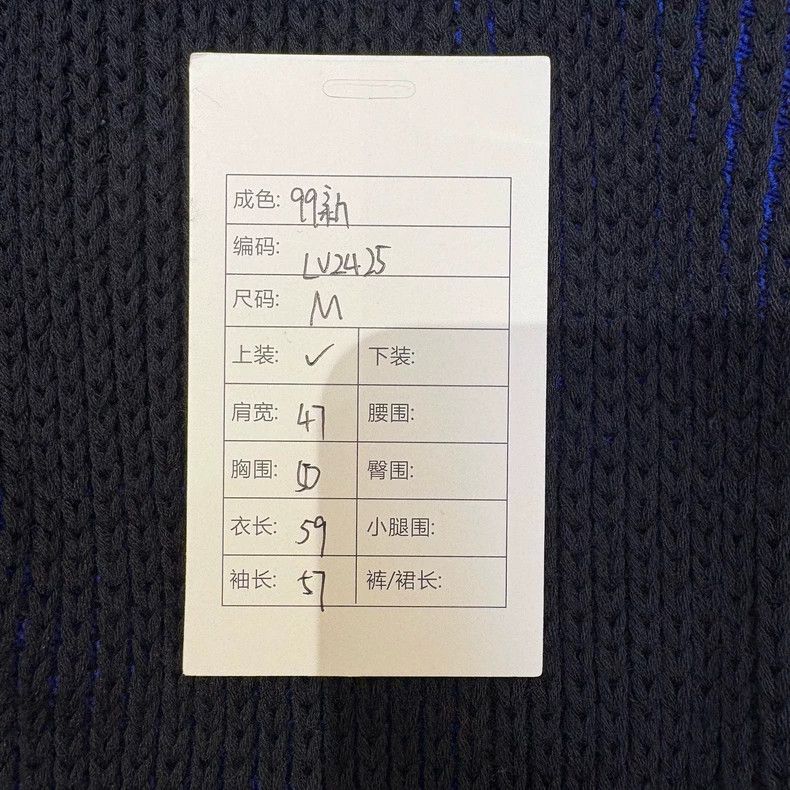 成色: 99新
编码: LV2425
尺码: M
上装: ✓ 下装:
肩宽: 47 腰围:
胸围: 50 臀围:
衣长: 59 小腿围:
袖长: 57 裤/裙长: